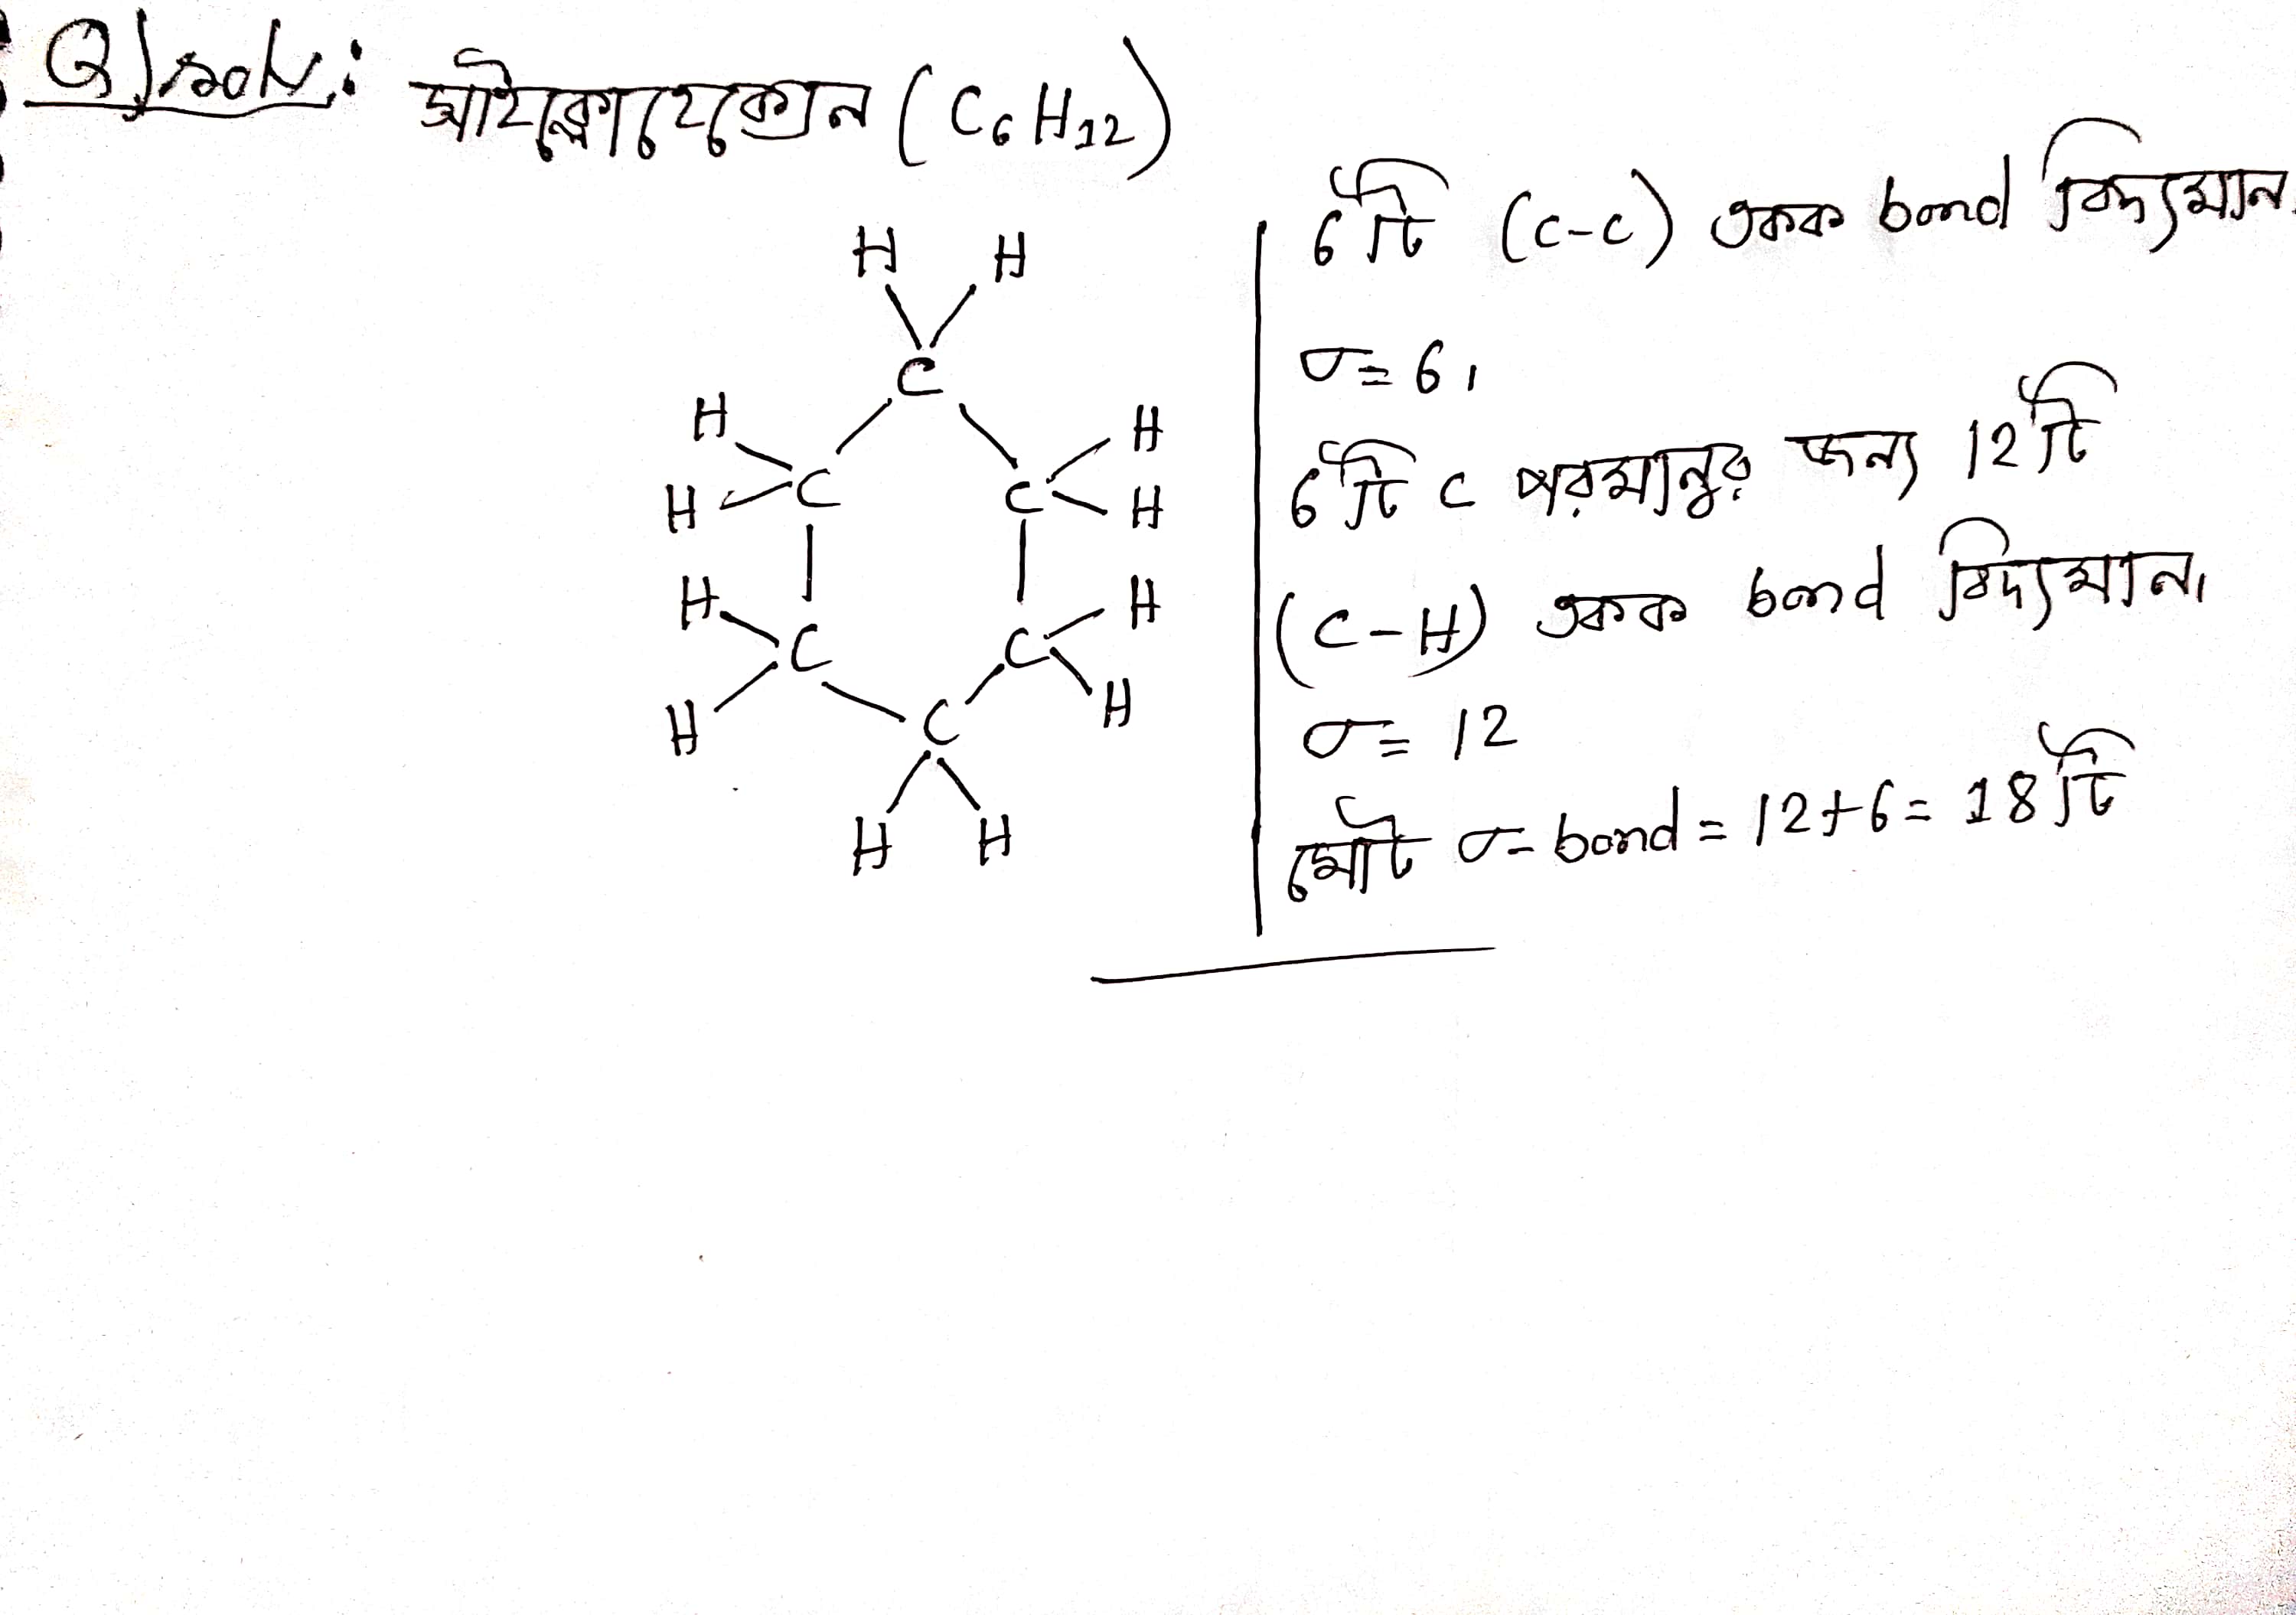 Q) solⁿ: সাইক্লোহেক্সেন (C₆H₁₂)
H H
C
H H
C C
H H
H H
C C
H H
C
H H
6 টি (C-C) একক bond বিদ্যমান
σ = 6,
6 টি C পরমানুর জন্য 12 টি
(C-H) একক bond বিদ্যমান।
σ = 12
মোট σ- bond = 12+6 = 18 টি